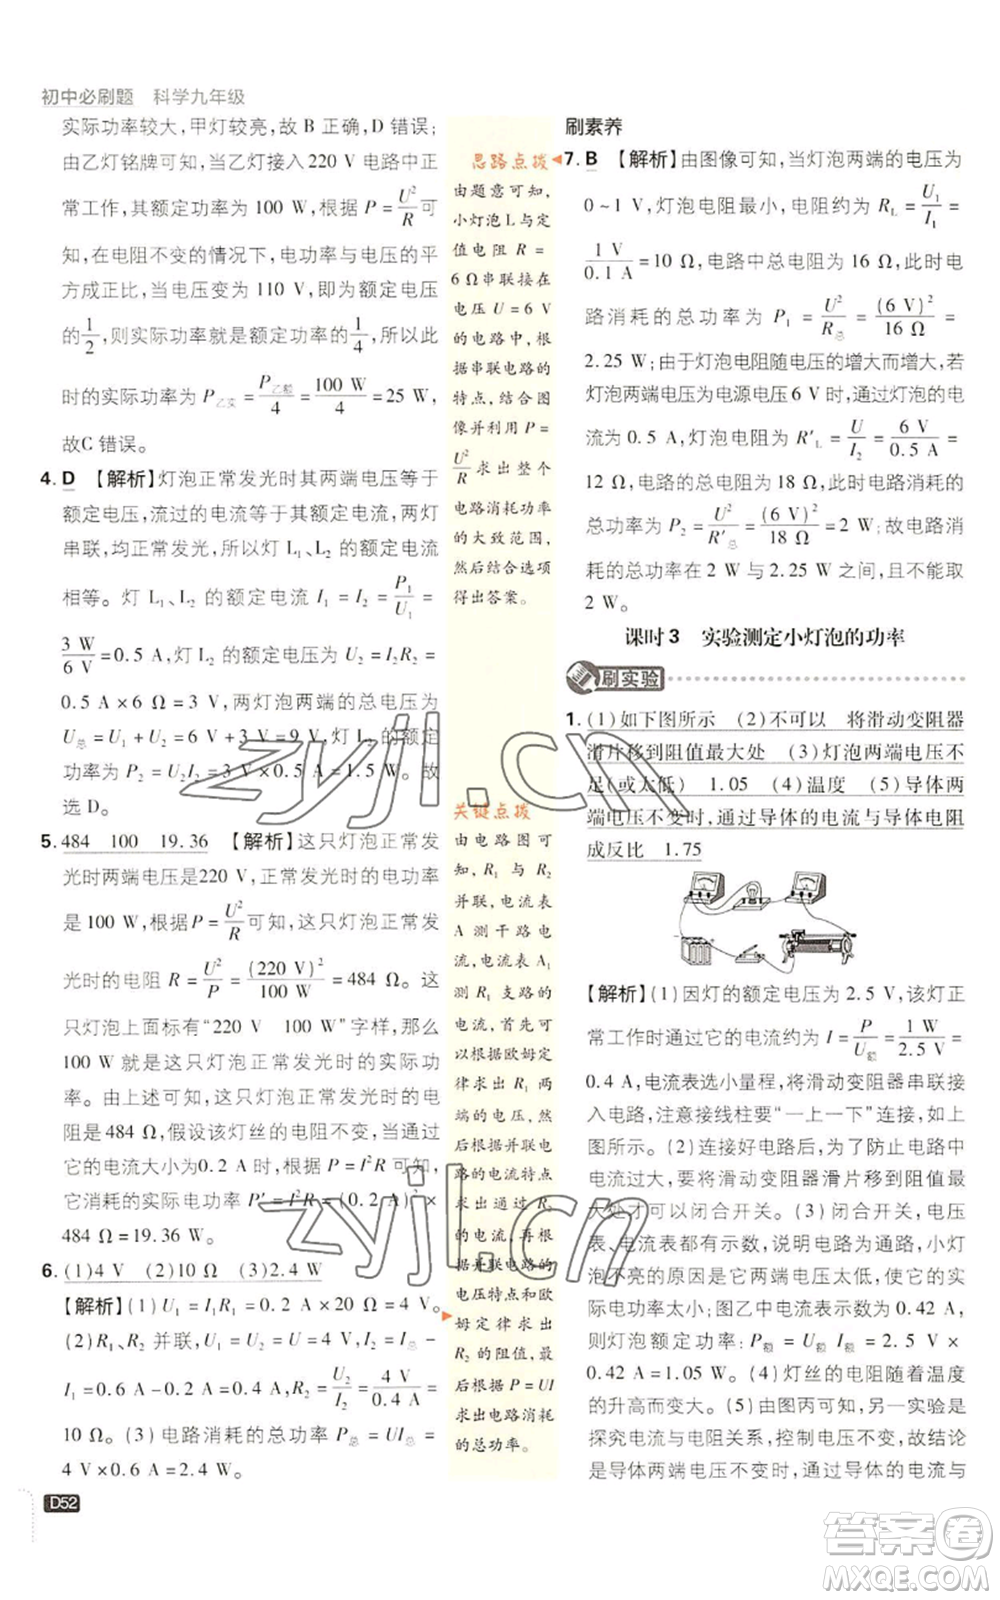 初中必刷题 科学九年级
实际功率较大，甲灯较亮，故 B 正确，D 错误；
由乙灯铭牌可知，当乙灯接入 220 V 电路中正
常工作，其额定功率为 100 W，根据 P = U²/R 可
知，在电阻不变的情况下，电功率与电压的平
方成正比，当电压变为 110 V，即为额定电压
的 1/2，则实际功率就是额定功率的 1/4，所以此
时的实际功率为 P乙实 = P乙额/4 = 100 W/4 = 25 W，
故C 错误。
4. D 【解析】灯泡正常发光时其两端电压等于
额定电压，流过的电流等于其额定电流，两灯
串联，均正常发光，所以灯 L₁、L₂ 的额定电流
相等。灯 L₁、L₂ 的额定电流 I₁ = I₂ = P₁/U₁ =
3 W/6 V = 0.5 A，灯 L₂ 的额定电压为 U₂ = I₂R₂ =
0.5 A×6 Ω = 3 V，两灯泡两端的总电压为
U总 = U₁ + U₂ = 6 V + 3 V = 9 V；灯 L₂ 的额定
功率为 P₂ = U₂I₂ = 3 V×0.5 A = 1.5 W。故
选 D。
5. 484 100 19.36 【解析】这只灯泡正常发
光时两端电压是220 V，正常发光时的电功率
是 100 W，根据 P = U²/R 可知，这只灯泡正常发
光时的电阻 R = U²/P = (220 V)²/100 W = 484 Ω。这
只灯泡上面标有“220 V 100 W”字样，那么
100 W 就是这只灯泡正常发光时的实际功
率。由上述可知，这只灯泡正常发光时的电
阻是 484 Ω，假设该灯丝的电阻不变，当通过
它的电流大小为0.2 A 时，根据 P = I²R 可知，
它消耗的实际电功率 P′ = I′²R = (0.2 A)² ×
484 Ω = 19.36 W。
6. (1)4 V (2)10 Ω (3)2.4 W
【解析】(1) U₁ = I₁R₁ = 0.2 A×20 Ω = 4 V。
(2) R₁、R₂ 并联，U₂ = U₁ = U = 4 V，I₂ = I总 −
I₁ = 0.6 A − 0.2 A = 0.4 A，R₂ = U₂/I₂ = 4 V/0.4 A =
10 Ω。(3) 电路消耗的总功率 P总 = UI总 =
4 V×0.6 A = 2.4 W。
D52
思路点拨
由题意可知，
小灯泡 L 与定
值电阻 R =
6 Ω串联接在
电压 U = 6 V
的电路中，根
据串联电路的
特点，结合图
像并利用 P =
U²/R 求出整个
电路消耗功率
的大致范围，
然后结合选项
得出答案。
关键点拨
由电路图可
知，R₁ 与 R₂
并联，电流表
A 测干路电
流，电流表 A₁
测 R₁ 支路的
电流，首先可
以根据欧姆定
律求出 R₁ 两
端的电压，然
后根据并联电
路的电流特点
求出通过 R₂
的电流，再根
据并联电路的
电压特点和欧
姆定律求出
R₂ 的阻值，最
后根据 P = UI
求出电路消耗
的总功率。
刷素养
7. B 【解析】由图像可知，当灯泡两端的电压为
0~1 V 时，灯泡电阻最小，电阻约为 R_L = U₁/I₁ =
1 V/0.1 A = 10 Ω，电路中总电阻为 16 Ω，此时电
路消耗的总功率为 P₁ = U²/R总 = (6 V)²/16 Ω =
2.25 W；由于灯泡电阻随电压的增大而增大，若
灯泡两端电压为电源电压 6 V 时，通过灯泡的电
流为 0.5 A，灯泡电阻为 R′_L = U/I = 6 V/0.5 A =
12 Ω，电路的总电阻为 18 Ω，此时电路消耗的
总功率为 P₂ = U²/R′总 = (6 V)²/18 Ω = 2 W；故电路消
耗的总功率在 2 W 与 2.25 W 之间，且不能取
2 W。
课时 3 实验测定小灯泡的功率
刷实验
1. (1) 如下图所示 (2) 不可以 将滑动变阻器
滑片移到阻值最大处 (3) 灯泡两端电压不
足(或太低) 1.05 (4) 温度 (5) 导体两
端电压不变时，通过导体的电流与导体电阻
成反比 1.75
【解析】(1) 因灯的额定电压为 2.5 V，该灯正
常工作时通过它的电流约为 I = P/U额 = 1 W/2.5 V =
0.4 A，电流表选小量程，将滑动变阻器串联接
入电路，注意接线柱要“一上一下”连接，如上
图所示。(2) 连接好电路后，为了防止电路中
电流过大，需要将滑动变阻器滑片移到阻值最
大处才可以闭合开关。(3) 闭合开关，电压
表、电流表均有示数，说明电路为通路，小灯
泡不亮的原因是它两端电压太低，使得它的实
际电功率太小；图乙中电流表示数为 0.42 A，
则灯泡额定功率：P额 = U额 I额 = 2.5 V ×
0.42 A = 1.05 W。(4) 灯丝的电阻随着温度
的升高而变大。(5) 由图丙可知，该实验是
探究电流与电阻关系，控制电压不变，故结论
是导体两端电压不变时，通过导体的电流与
zyjl.cn
zyjl.cn
答案圈
MXQE.COM